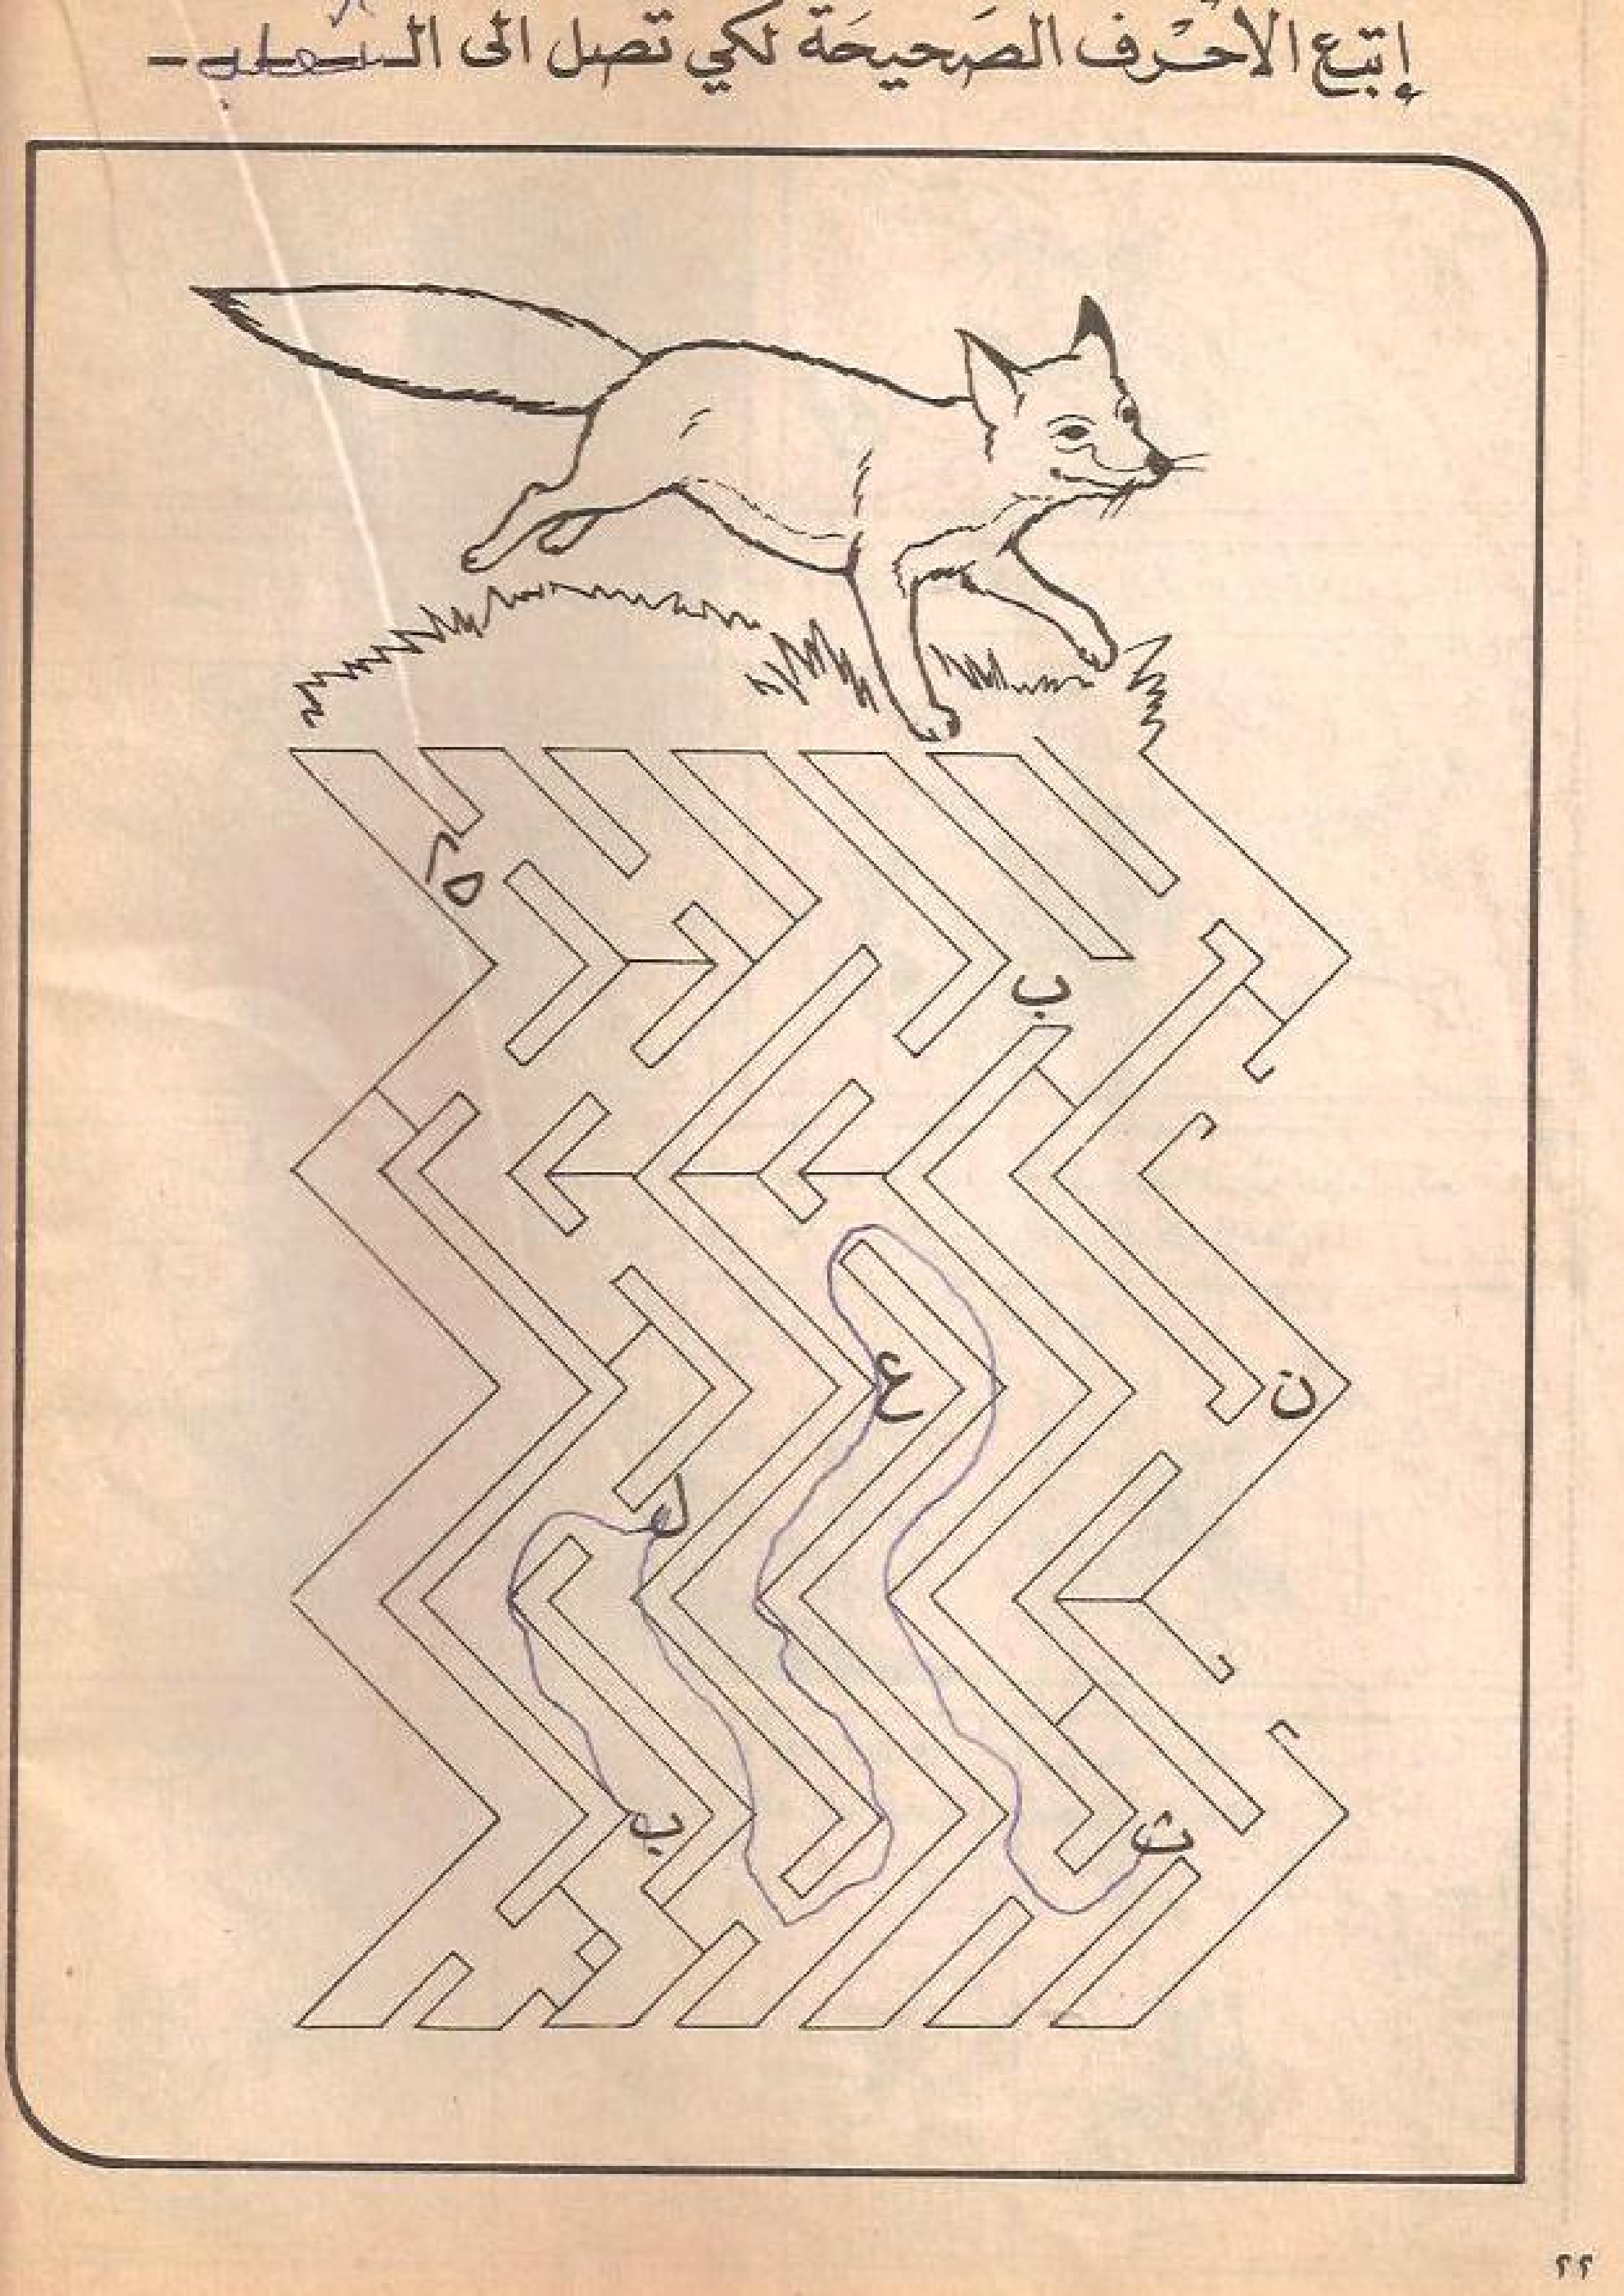 إتبع الأحْرف الصَحيحَة لكي تَصل الى الـثعلب
ك
ه
ب
ع
ن
ل
ب
ث
٢٢